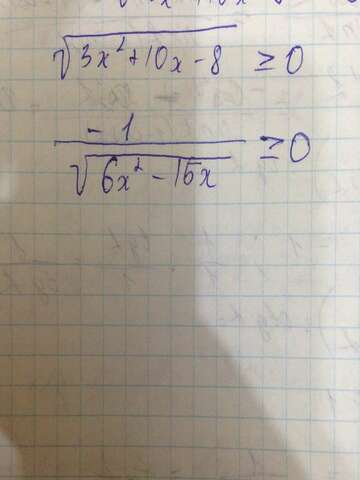 √(3x² + 10x - 8) ≥ 0
-1 / √(6x² - 15x) ≥ 0